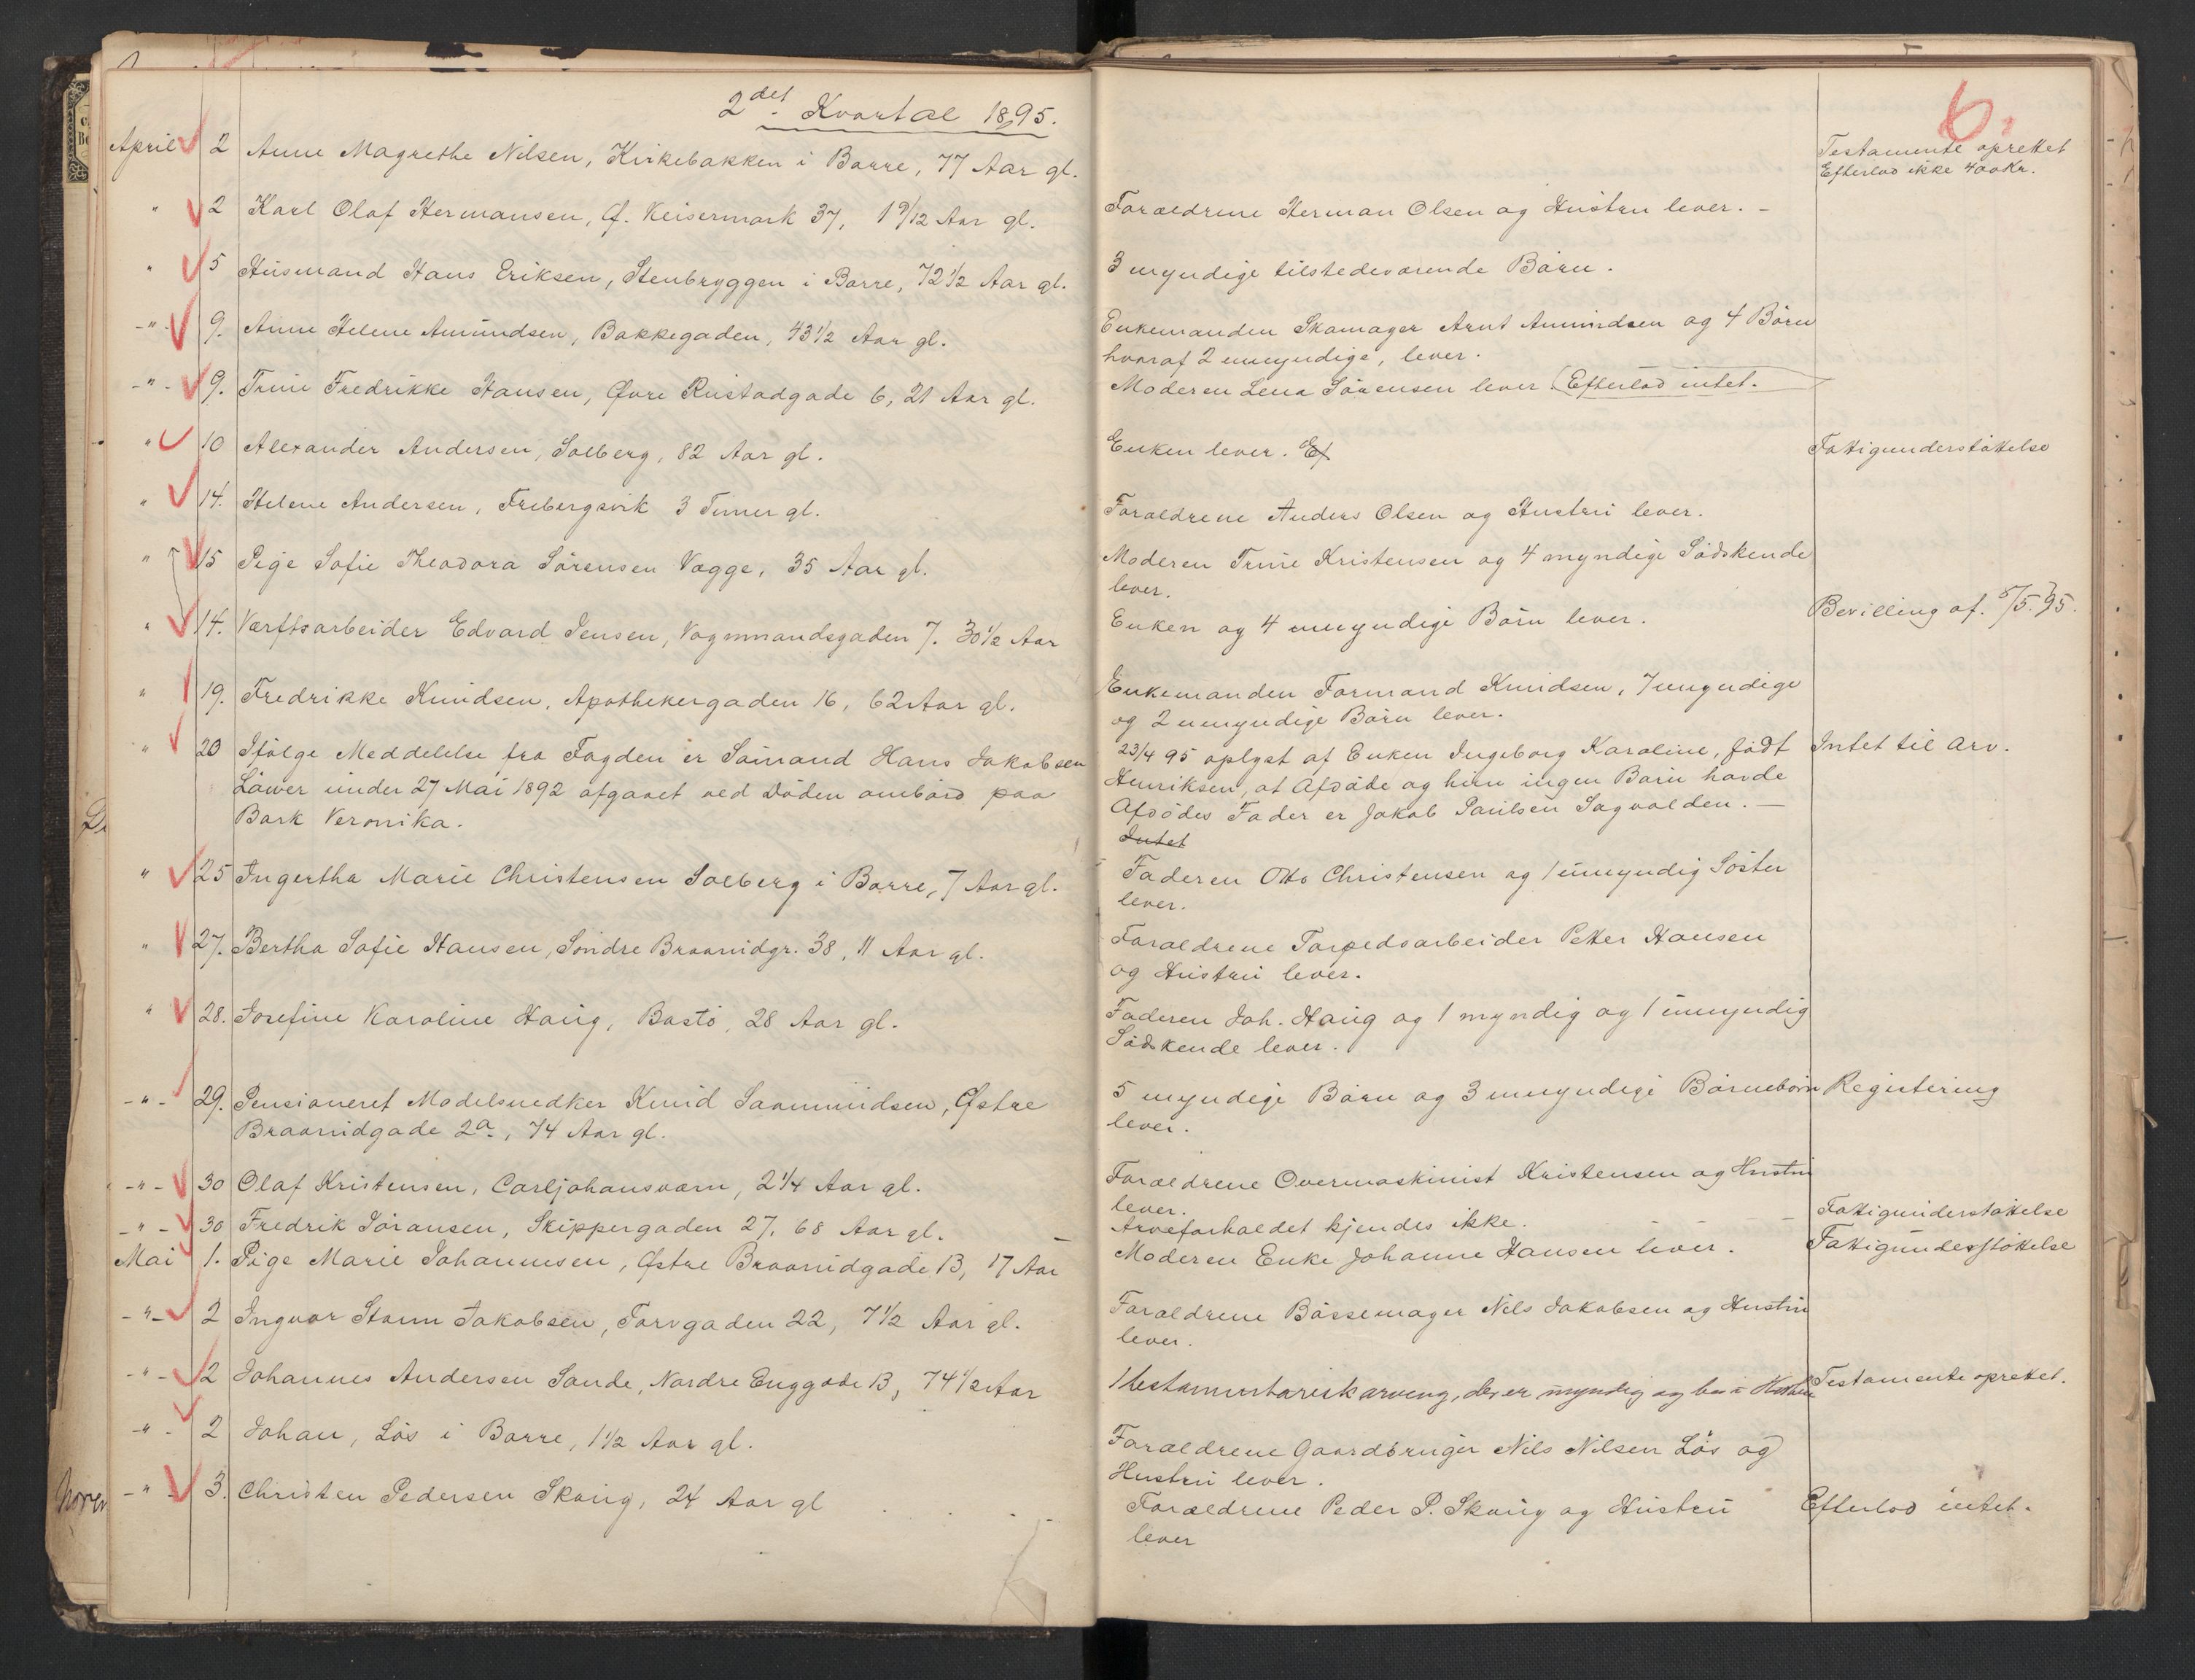 2det Kvartal 1895.
6.
April 2 Anne Magrethe Nilsen, Kirkebakken i Borre, 77 Aar gl.
Testamente oprettet
Efterlod ikke 400 Kr.
" 2 Karl Olaf Hermansen, Ø. Keisermark 37, 1 9/12 Aar gl.
Forældrene Herman Olsen og Hustru lever. -
" 5 Husmand Hans Eriksen, Stenbryggen i Borre, 72 1/2 Aar gl.
3 myndige tilstedeværende Börn.
-"- 9. Anne Helene Amundsen, Bakkegaden, 43 1/2 Aar gl.
Enkemanden Skomager Arnt Amundsen og 4 Börn
hvoraf 2 umyndige, lever.
-"- 9. Trine Fredrikke Hansen, Øvre Rustadgade 6, 21 Aar gl.
Moderen Lena Sörensen lever (Efterlod intet.
" 10 Alexander Andersen, Solberg, 82 Aar gl.
Enken lever. Ef
Fattigunderstöttelse
" 14. Helene Andersen, Frebergsvik 3 Timer gl.
Forældrene Anders Olsen og Hustru lever.
" 15 Pige Sofie Theodora Sörensen Vagge, 35 Aar gl.
Moderen Trine Kristensen og 4 myndige Södskende
lever.
" 14. Værftsarbeider Edvard Jensen, Vognmandsgaden 7. 30 1/2 Aar
Enken og 4 umyndige Börn lever.
Bevilling af. 8/5. 95.
" 19. Fredrikke Knudsen, Apothekergaden 16, 62 Aar gl.
Enkemanden Formand Knudsen, 7 myndige
og 2 umyndige Börn lever.
" 20 Ifölge Meddelelse fra Fogden er Sömand Hans Jakobsen
Löwer under 27 Mai 1892 afgaaet ved Döden ombord paa
Bark Veronika.
23/4 95 oplyst af Enken Ingeborg Karoline, födt
Henriksen, at Afdöde og hun ingen Börn havde
Afdödes Fader er Jakob Paulsen Sagvolden. -
Intet
Intet til Arv.
" 25 Ingertha Marie Christensen Solberg i Borre, 7 Aar gl.
Faderen Otto Christensen og 1 umyndig Söster
lever.
" 27. Bertha Sofie Hansen, Söndre Braarudgr. 38, 11 Aar gl.
Forældrene Torpedoarbeider Petter Hansen
og Hustru lever.
" 28. Josefine Karoline Haug, Bastö, 28 Aar gl.
Faderen Joh. Haug og 1 myndig og 1 umyndig
Södskende lever.
-"- 29. Pensioneret Modelsnedker Knud Saamundsen, Østre
Braarudgade 2a, 74 Aar gl.
5 myndige Börn og 3 umyndige Börnebörn
lever.
Registering
-"- 30 Olaf Kristensen, Carljohansværn, 2 1/4 Aar gl.
Forældrene Overmaskinist Kristensen og Hustru
lever.
-"- 30 Fredrik Söransen, Skippergaden 27, 68 Aar gl.
Arveforholdet kjendes ikke.
Fattigunderstöttelse
Mai 1. Pige Marie Johannesen, Østre Braarudgade 13, 17 Aar
Moderen Enke Johanne Hansen lever.
Fattigunderstöttelse
-"- 2 Ingvar Stann Jakobsen, Torvgaden 22, 7 1/2 Aar gl.
Forældrene Bössemager Nils Jakobsen og Hustru
lever.
-"- 2 Johannes Andersen Sande, Nordre Enggade 13, 74 1/2 Aar
1 testamentarisk arving, der er myndig og bor i Horten
Testamente oprettet.
-"- 2 Johan, Lös i Borre, 1 1/2 Aar gl.
Forældrene Gaardbruger Nils Nilsen Lös og
Hustru lever.
-"- 3. Christen Pedersen Skoug, 24 Aar gl
Forældrene Peder P. Skoug og Hustru
lever
Efterlod intet.